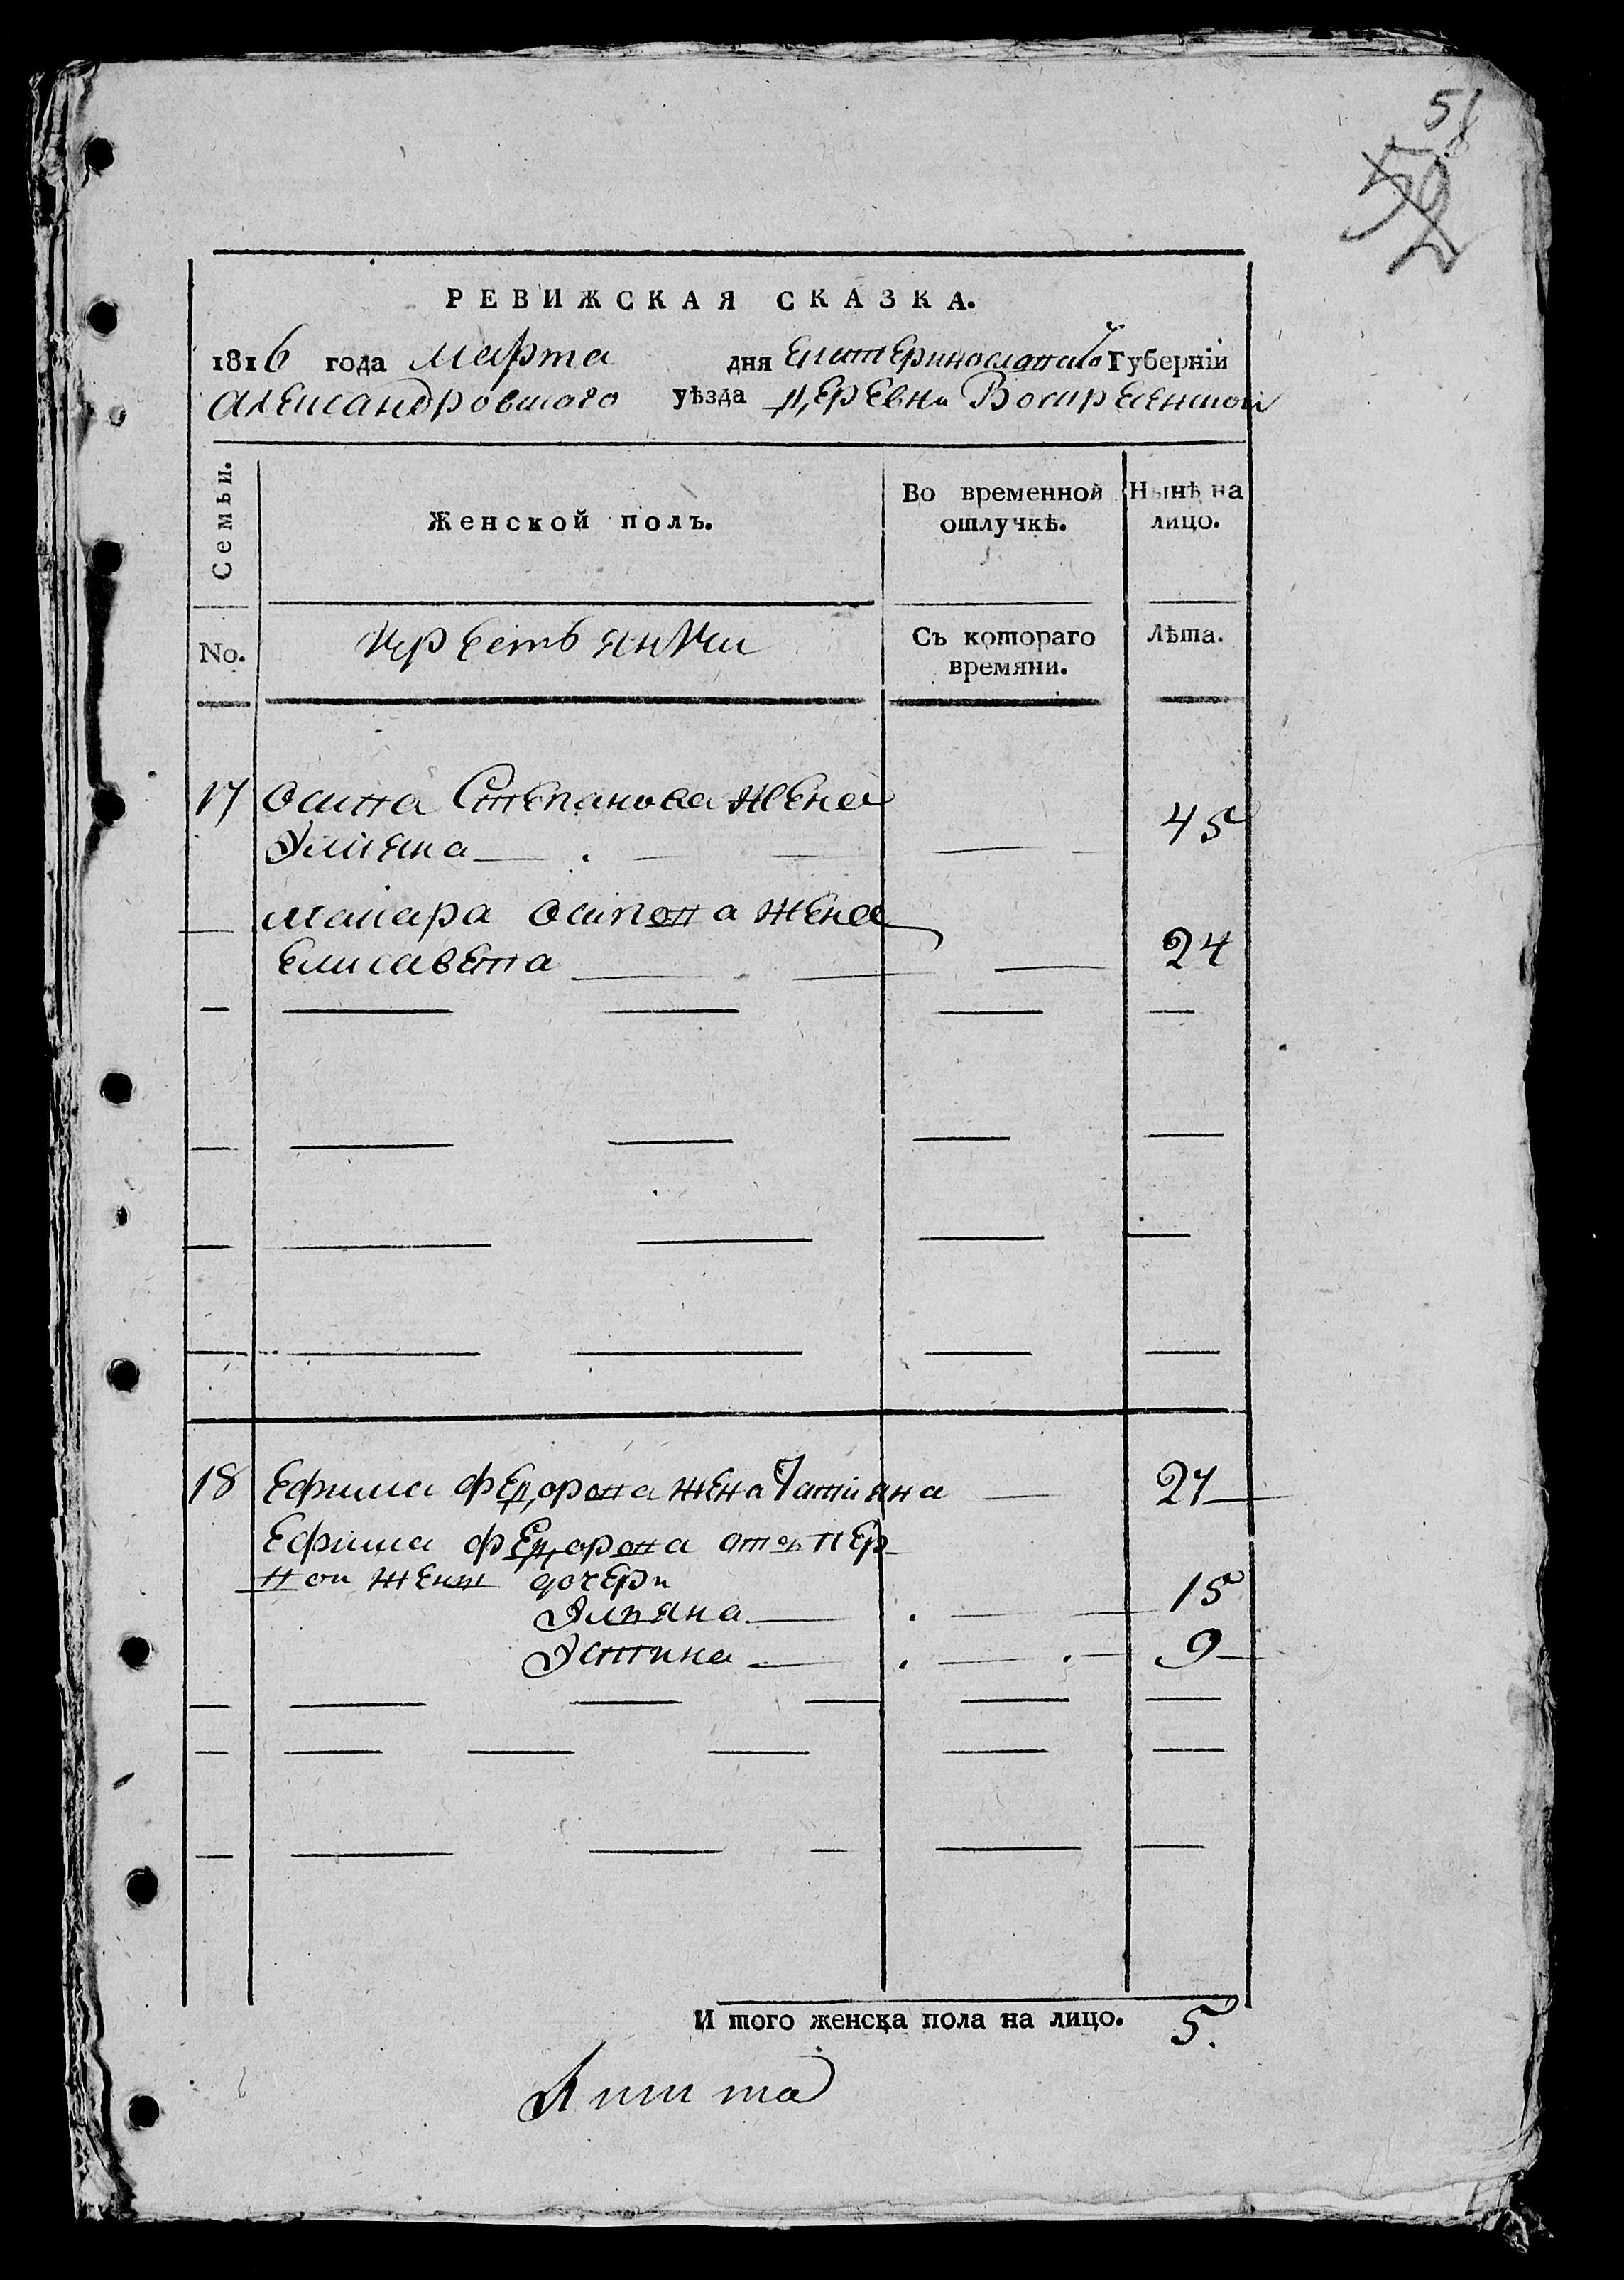 58
52
РЕВИЖСКАЯ СКАЗКА.
1816 года Марта дня Екатеринославской Губерніи
Александровского уѣзда деревни Воскресенской
Семьи. Женской полъ. Во временной отлучкѣ. Нынѣ на лицо.
No. крестьянки Съ котораго времяни. Лѣта.
17 Осипа Степанова жена
Улияна — 45
Макара Осипова жена
Елисавета — 24
18 Ефима Федорова жена Татияна — 24
Ефима Федорова отъ пер
вой жены дочери
Ульяна — 15
Устина — 9
И того женска пола на лицо. 5.